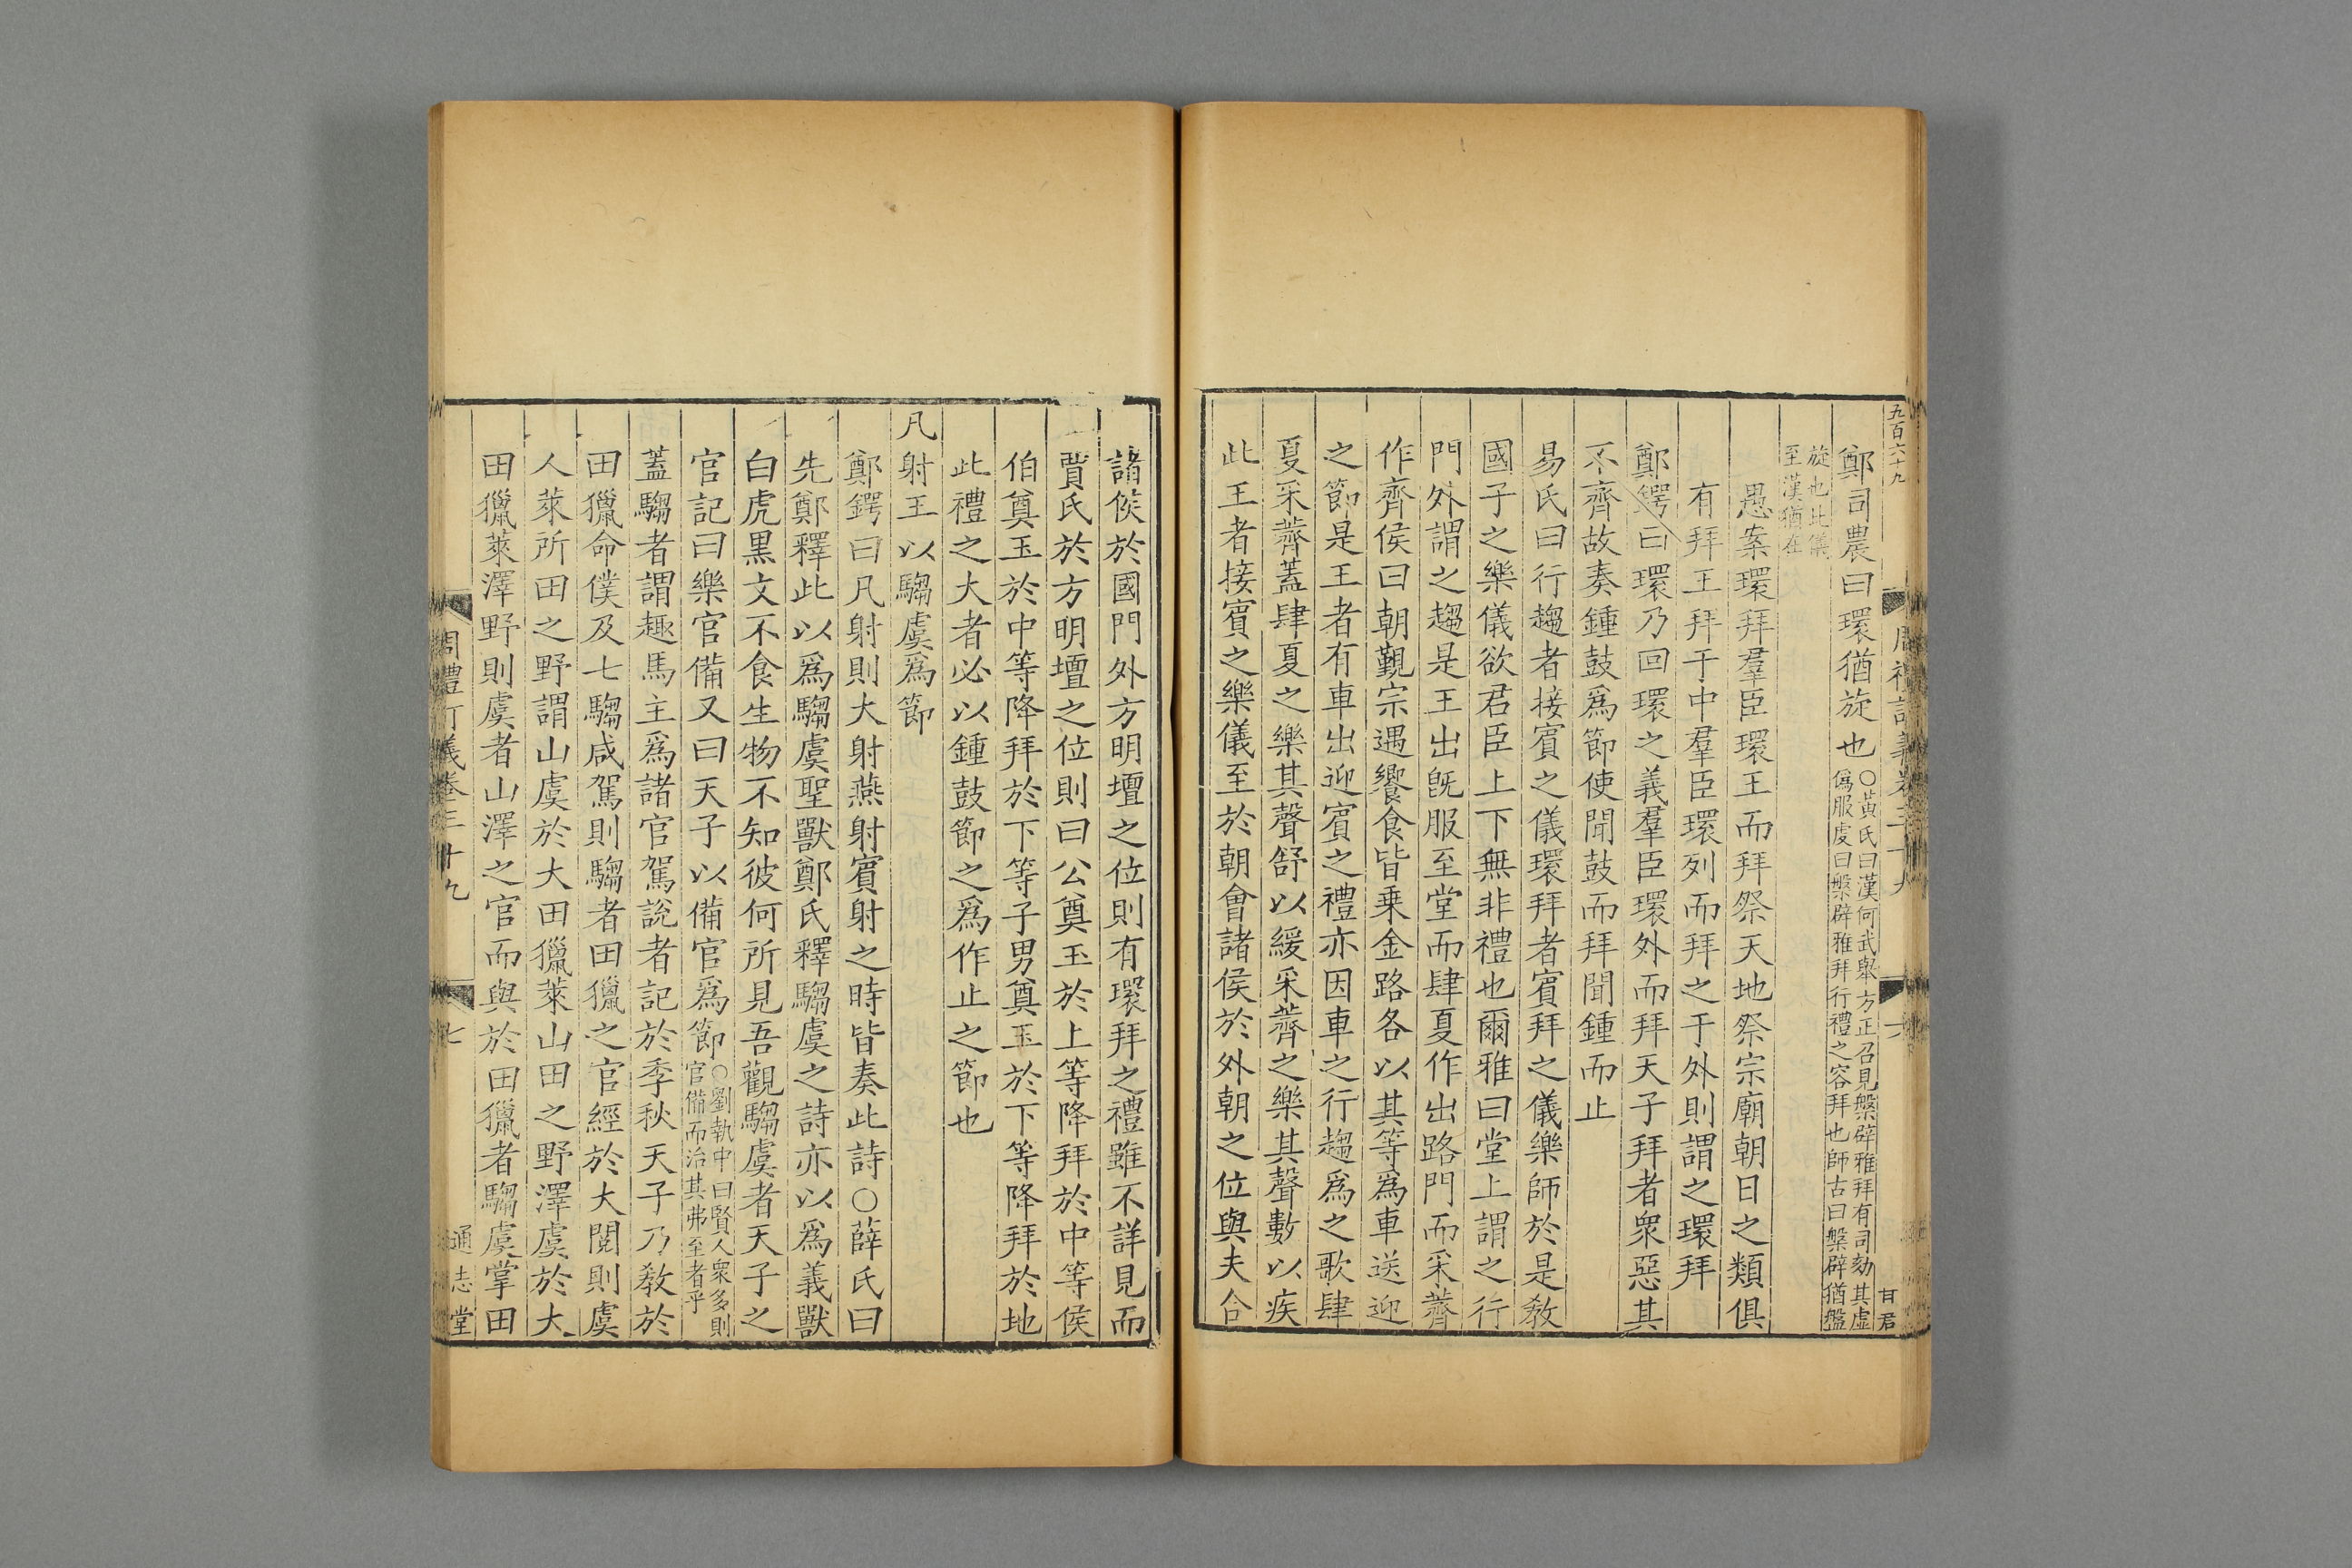 五百六十九
鄭司農曰環猶旋也○黃氏曰漢何武舉方正召見槃辟雅拜有司劾其虛
僞服虔曰槃辟雅拜行禮之容拜也師古曰槃辟猶盤
旋也此儀
至漢猶在
愚案環拜羣臣環王而拜祭天地祭宗廟朝日之類俱
有拜王拜于中羣臣環列而拜之于外則謂之環拜
鄭鍔曰環乃回環之義羣臣環外而拜天子拜者衆惡其
不齊故奏鍾鼓爲節使聞鼓而拜聞鍾而止
易氏曰行趨者接賓之儀環拜者賓拜之儀樂師於是敎
國子之樂儀欲君臣上下無非禮也爾雅曰堂上謂之行
門外謂之趨是王出旣服至堂而肆夏作出路門而采薺
作齊侯曰朝覲宗遇饗食皆乗金路各以其等爲車送迎
之節是王者有車出迎賓之禮亦因車之行趨爲之歌肆
夏采薺蓋肆夏之樂其聲舒以緩采薺之樂其聲數以疾
此王者接賓之樂儀至於朝會諸侯於外朝之位與夫合
甘君
諸侯於國門外方明壇之位則有環拜之禮雖不詳見而
賈氏於方明壇之位則曰公奠玉於上等降拜於中等侯
伯奠玉於中等降拜於下等子男奠玉於下等降拜於地
此禮之大者必以鍾鼓節之爲作止之節也
凡射王以騶虞爲節
鄭鍔曰凡射則大射燕射賓射之時皆奏此詩○薛氏曰
先鄭釋此以爲騶虞聖獸鄭氏釋騶虞之詩亦以爲義獸
白虎黑文不食生物不知彼何所見吾觀騶虞者天子之
官記曰樂官備又曰天子以備官爲節○劉執中曰賢人衆多則
官備而治其弗至者乎
蓋騶者謂趣馬主爲諸官駕說者記於季秋天子乃敎於
田獵命僕及七騶咸駕則騶者田獵之官經於大閱則虞
人萊所田之野謂山虞於大田獵萊山田之野澤虞於大
田獵萊澤野則虞者山澤之官而與於田獵者騶虞掌田
周禮訂義卷三十九
七
通志堂